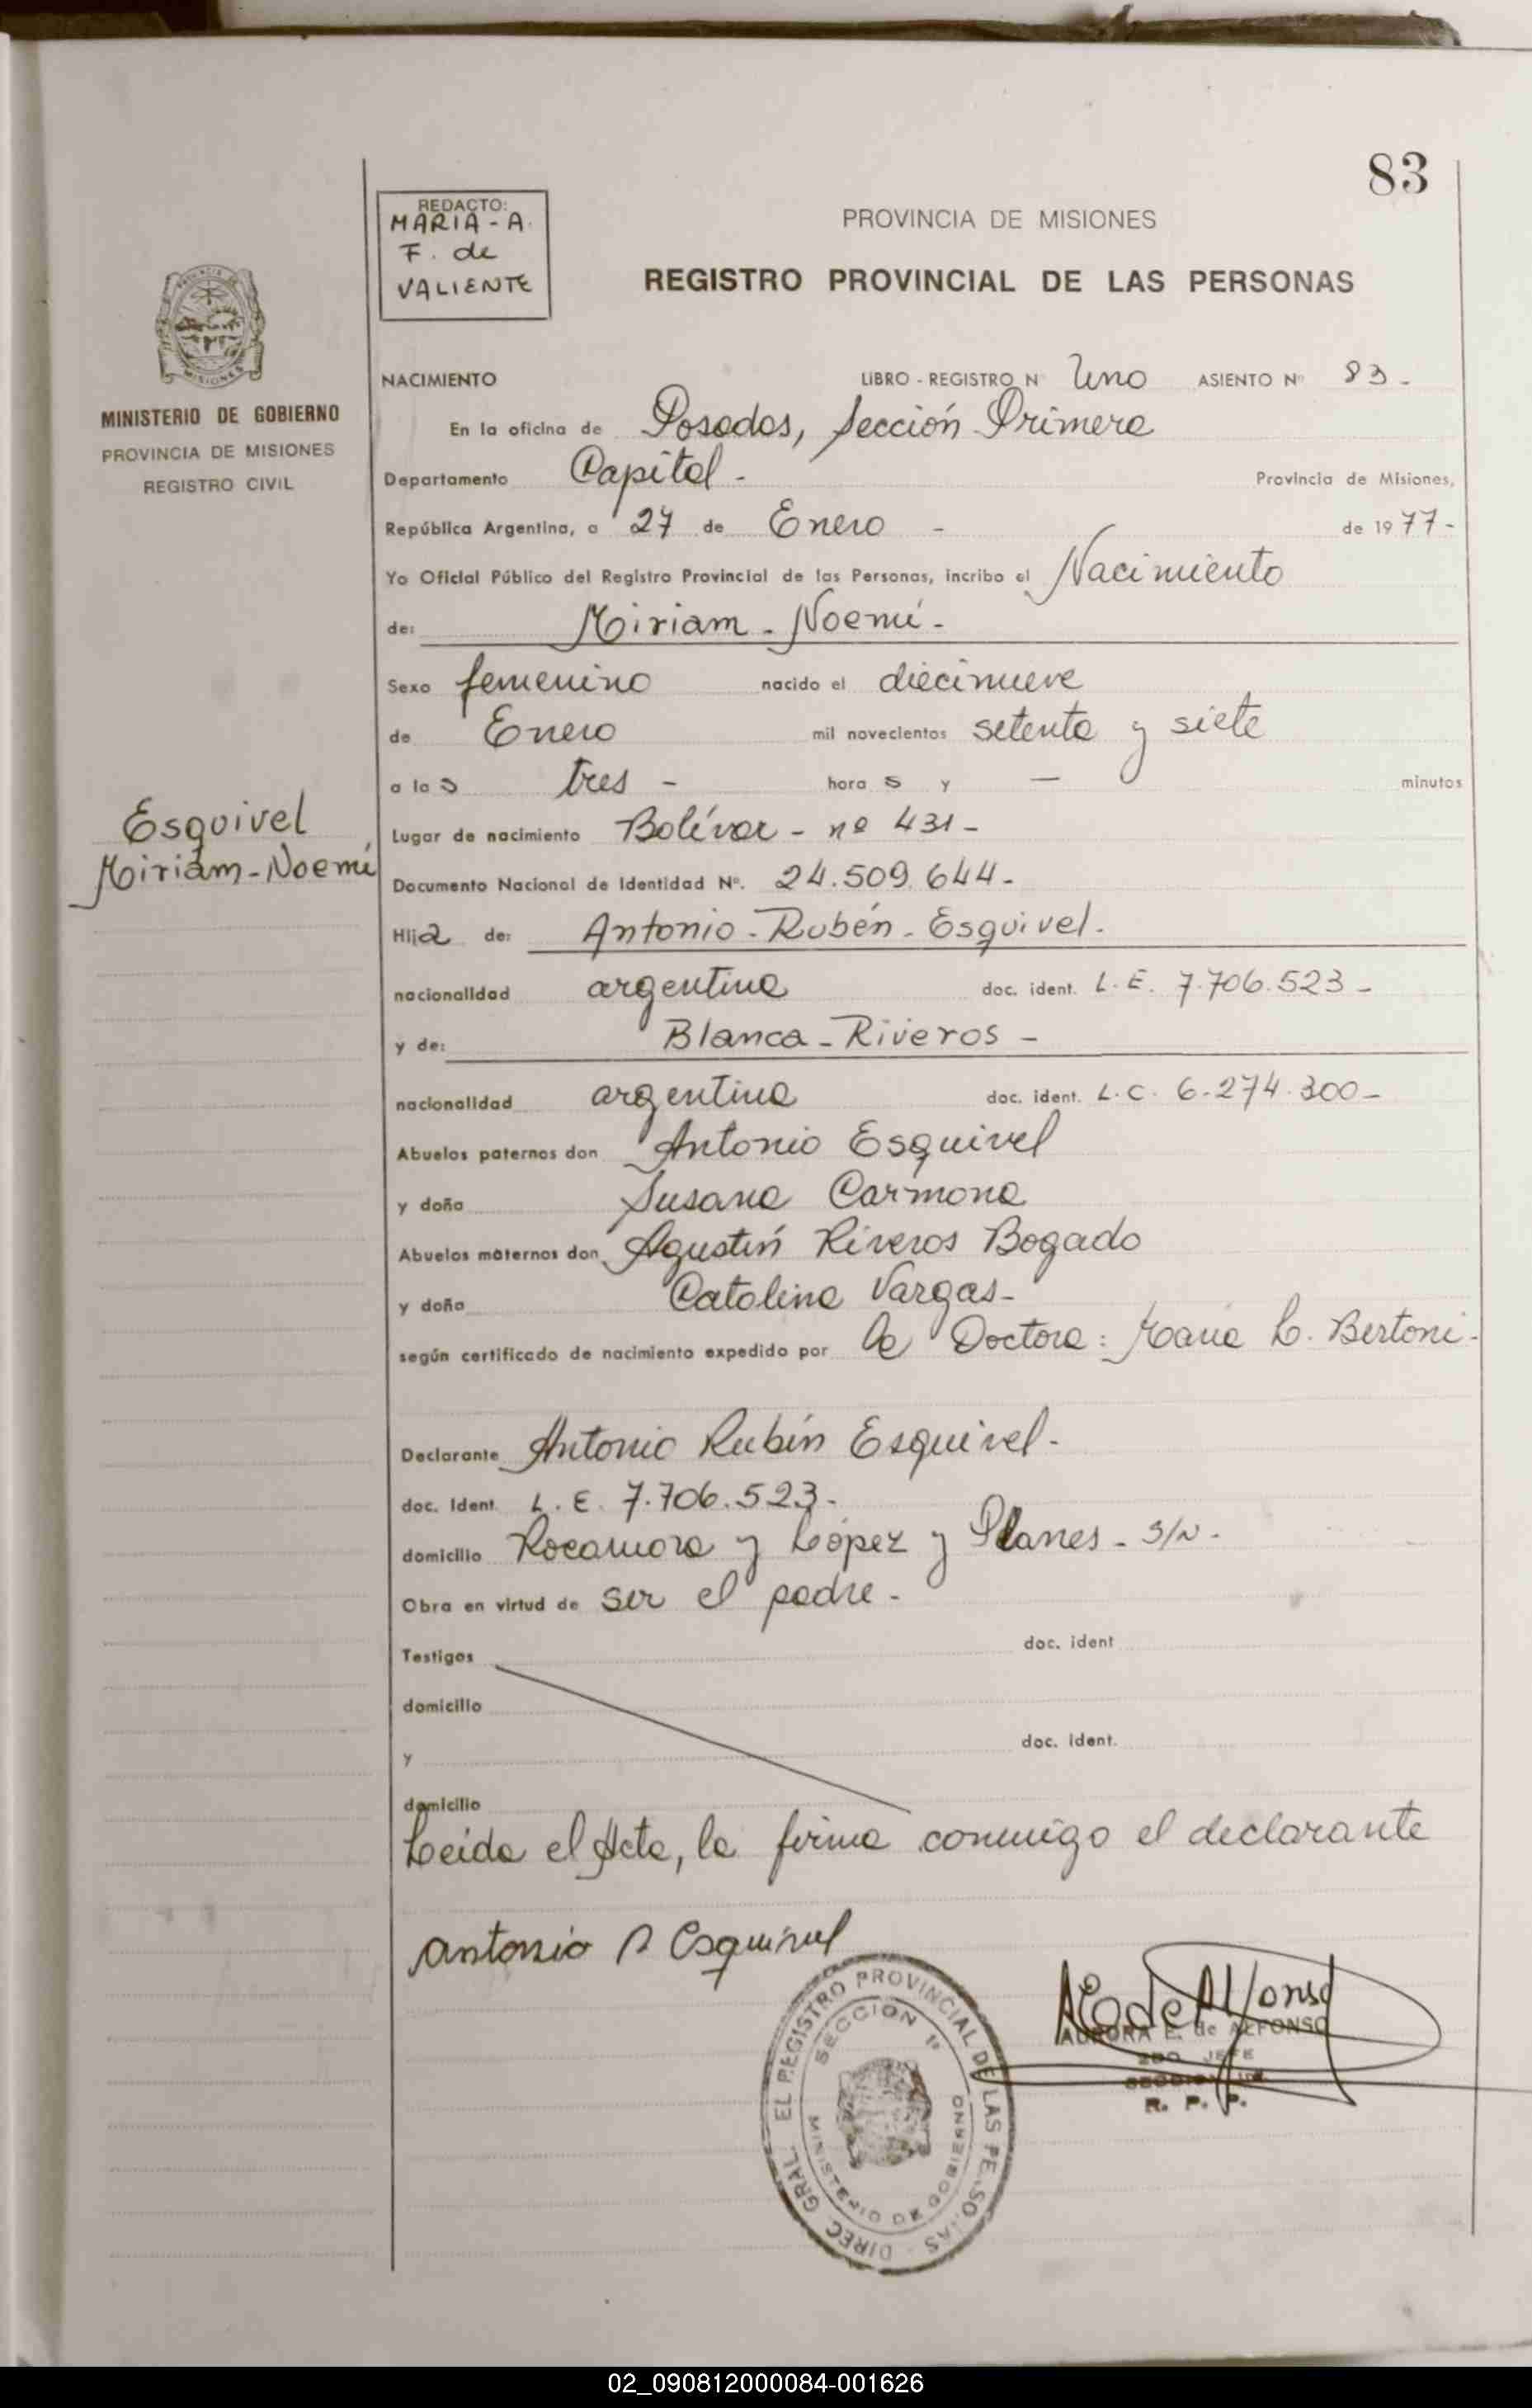 83
REDACTO:
MARIA - A.
F. de
VALIENTE
PROVINCIA DE MISIONES
REGISTRO PROVINCIAL DE LAS PERSONAS
MINISTERIO DE GOBIERNO
PROVINCIA DE MISIONES
REGISTRO CIVIL
NACIMIENTO LIBRO - REGISTRO Nº Uno ASIENTO Nº 83 -
En la oficina de Posadas, Sección Primera
Departamento Capital - Provincia de Misiones,
República Argentina, a 27 de Enero - de 1977-
Yo Oficial Público del Registro Provincial de las Personas, incribo el Nacimiento
de: Miriam - Noemí -
Sexo femenino nacido el diecinueve
de Enero mil novecientos setenta y siete
a las tres - horas y — minutos
Esquivel
Miriam - Noemí
Lugar de nacimiento Bolívar - nº 431 -
Documento Nacional de Identidad Nº. 24.509.644-
Hija de: Antonio - Rubén - Esquivel.
nacionalidad argentina doc. ident. L.E. 7.706.523 -
y de: Blanca - Riveros -
nacionalidad argentina doc. ident. L.C. 6.274.300 -
Abuelos paternos don Antonio Esquivel
y doña Susana Carmona
Abuelos maternos don Agustín Riveros Bogado
y doña Catalina Vargas -
según certificado de nacimiento expedido por la Doctora: María L. Bertoni -
Declarante Antonio Rubén Esquivel -
doc. Ident. L.E. 7.706.523 -
domicilio Rocamora y López y Planes - S/N -
Obra en virtud de ser el padre -
Testigos doc. ident
domicilio
y doc. ident.
domicilio
Leida el Acta, la firma conmigo el declarante
Antonio R Esquivel
AE de Alfonso
AURORA E. de ALFONSO
2DO JEFE
SECCION 1ra
R. P. P.
DIREC. GRAL. EL REGISTRO PROVINCIAL DE LAS PERSONAS
SECCION 1ª
MINISTERIO DE GOBIERNO
02_090812000084-001626